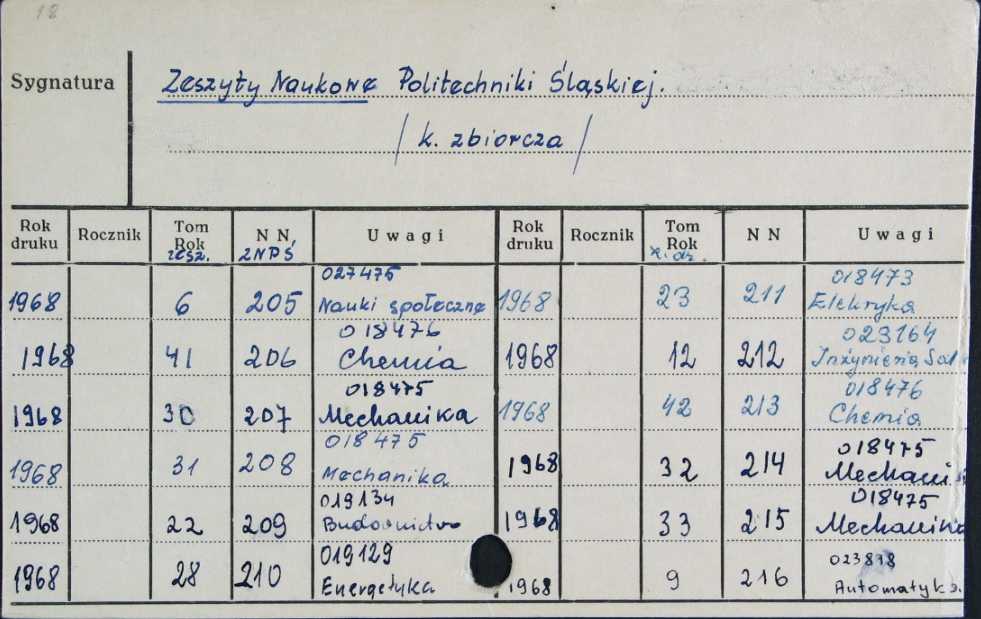 18
Sygnatura
Zeszyty Naukowe Politechniki Śląskiej.
/ k. zbiorcza /
Rok druku Rocznik Tom Rok zesz. N N ZNPŚ Uwagi Rok druku Rocznik Tom Rok N N Uwagi
027475 018473
1968 6 205 Nauki społeczne 1968 23 211 Elektryka
018476 023164
1968 41 206 Chemia 1968 12 212 Inżynieria
018475 018476
1968 30 207 Mechanika 1968 42 213 Chemia
018475 018475
1968 31 208 Mechanika 1968 32 214 Mechani
019134 018475
1968 22 209 Budownictwo 1968 33 215 Mechanika
019129 023818
1968 28 210 Energetyka 1968 9 216 Automatyka.